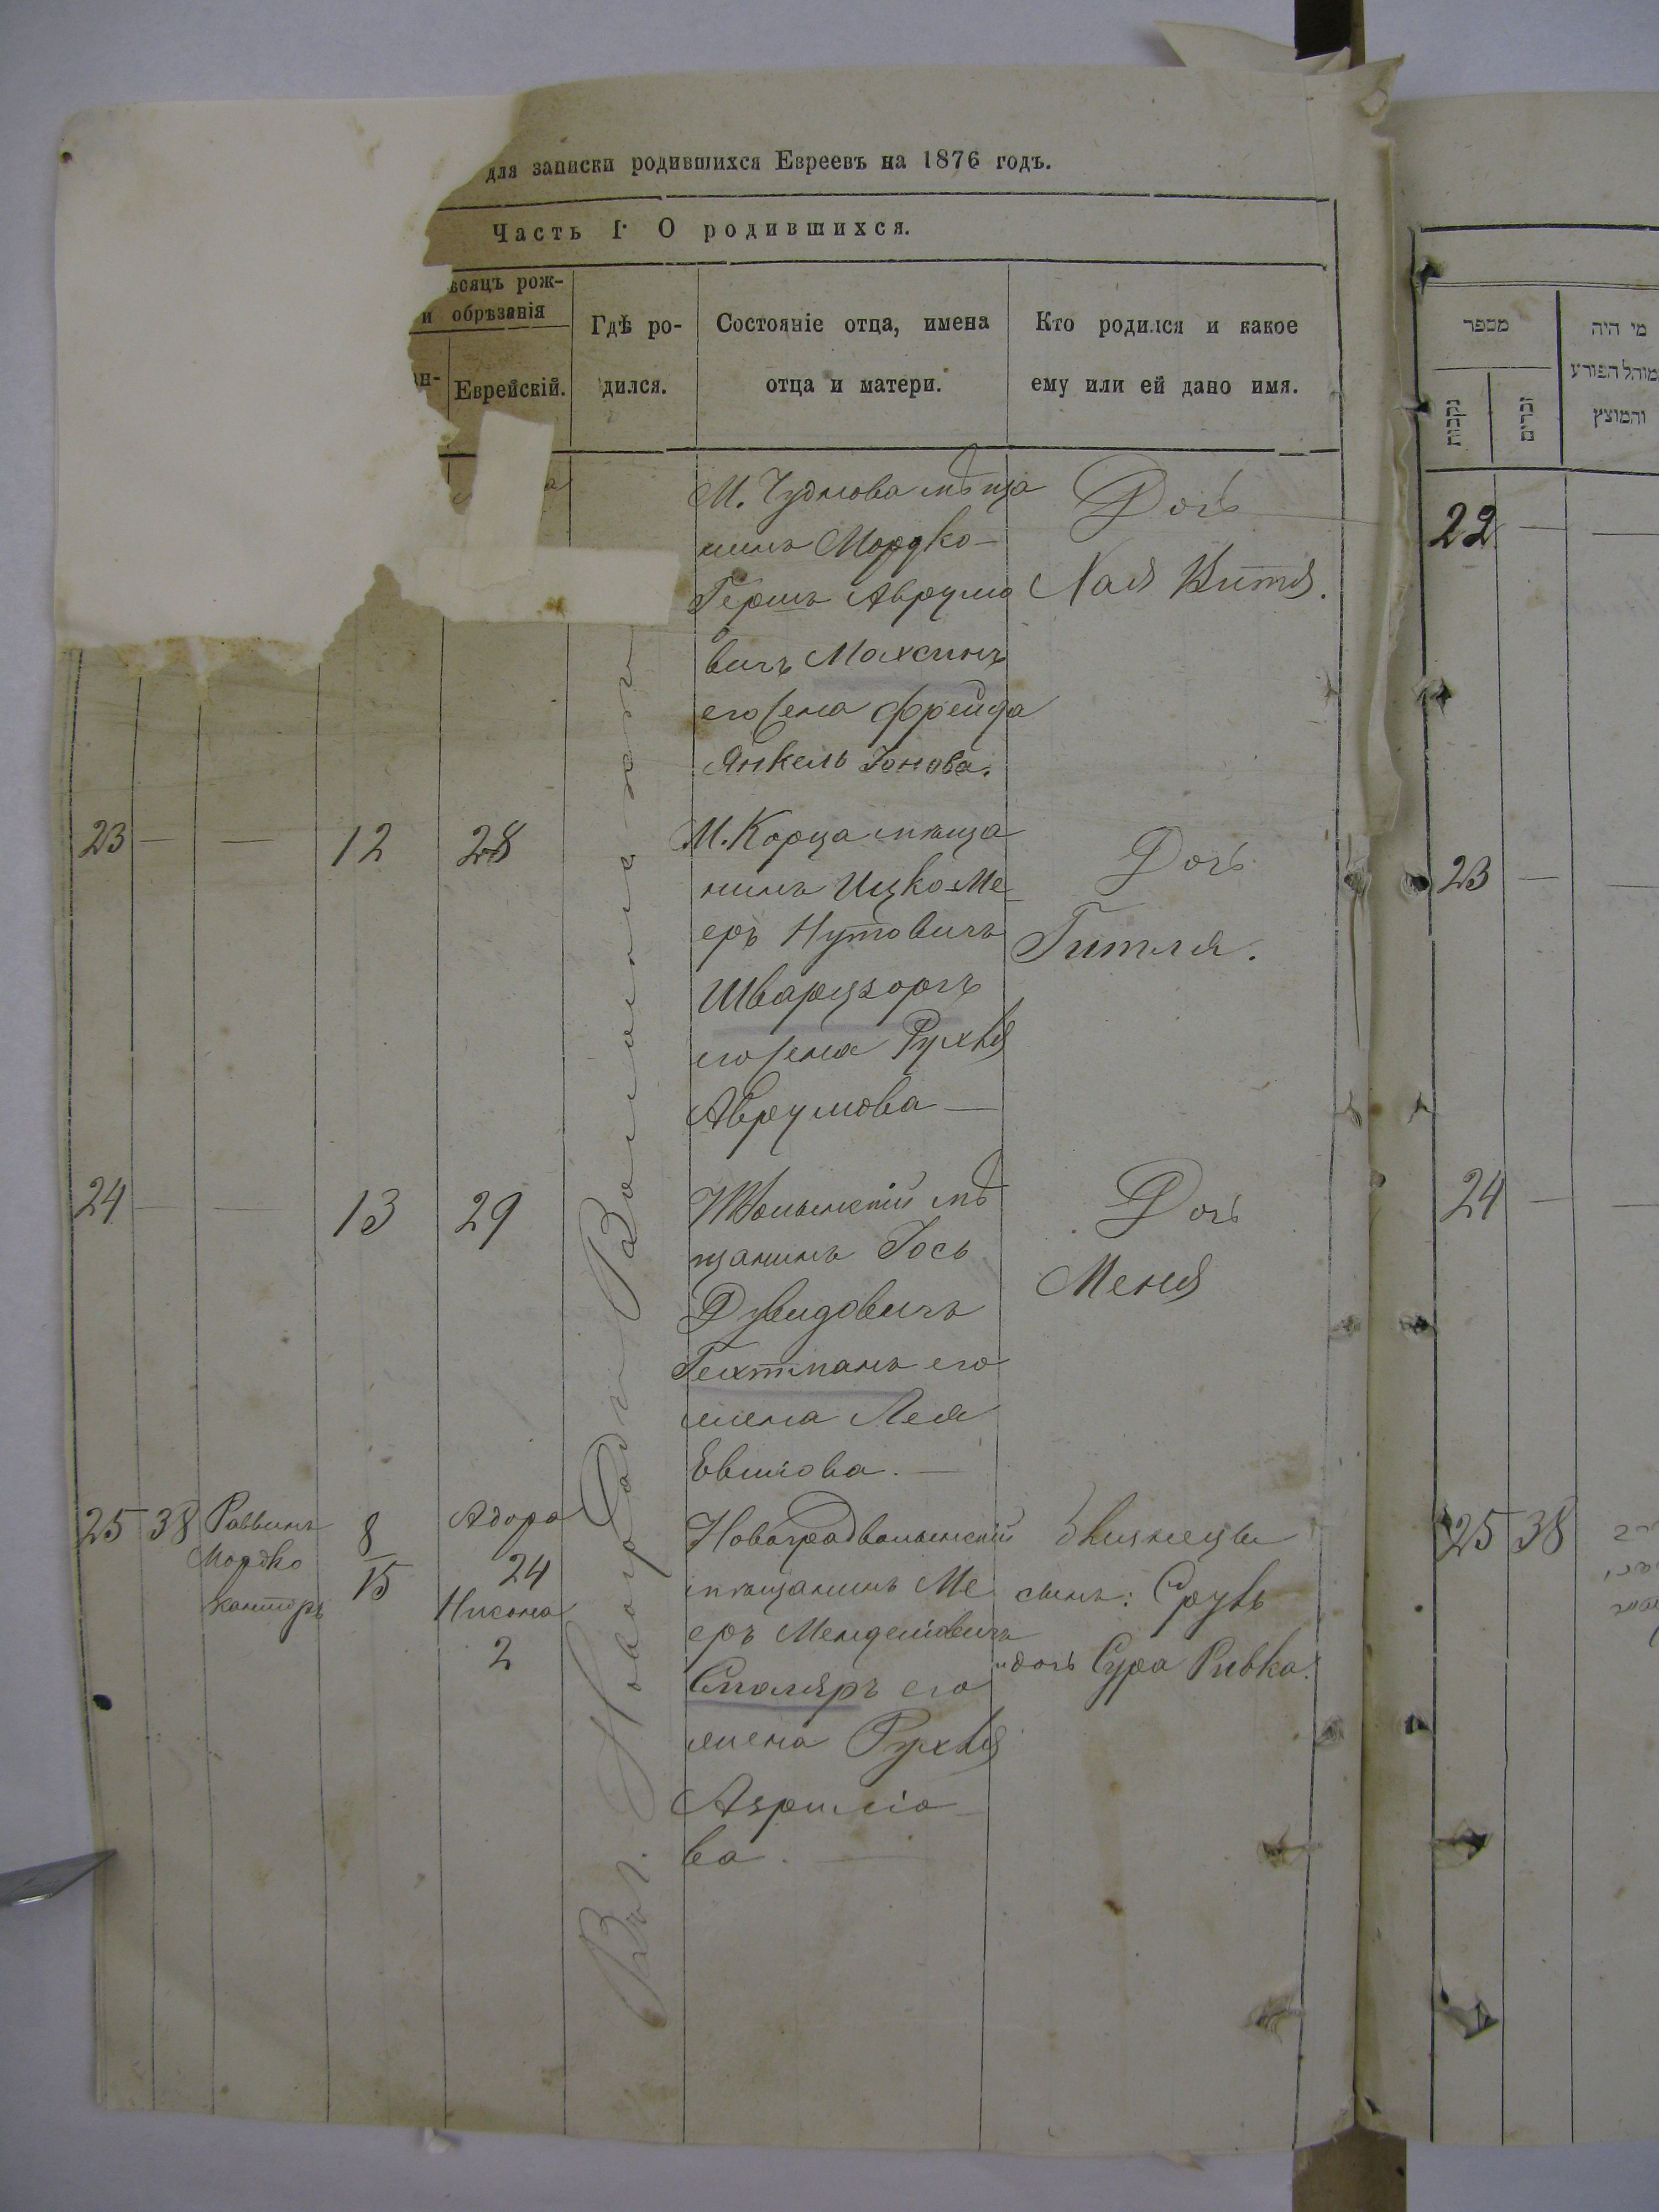 для записки родившихся Евреевъ на 1876 годъ.
Часть I. О родившихся.
ѣсяцъ рож-
и обрѣзанія
ан-
Еврейскій.
Гдѣ ро-
дился.
Состояніе отца, имена
отца и матери.
Кто родился и какое
ему или ей дано имя.
М. Чуднова мѣща
нинъ Мордко-
Гершъ Аврумо
вичъ
его жена Фрейда
Янкель Іонова.
Дочь
Хая
23 — — 12 28
М. Корца мѣща
нинъ Ицко-Ме-
еръ Нутовичъ
Шварцгорнъ
его жена Рухля
Аврумова —
Дочь
Гитля.
24 — — 13 29
НВолынскій мѣ
щанинъ Іось
Дувидовичъ
Гехтманъ его
жена Лея
—
Дочь
Меня
25 38 Раввинъ
Мордко
Канторъ
8
15
Адора
24
Нисона
2
Новоградволынскій
мѣщанинъ Ме
еръ Менделіовичъ
Столяръ его
жена Рухля
Азриліо
ва. —
Близнецы
сынъ: Сруль
и дочь Сура Ривка.
Въ г. Новоградъ Волынскѣ
מספר
נקבות
זכרים
מי היה
מוהל הפורע
והמוצץ
22 — —
23 — —
24 — —
25 38